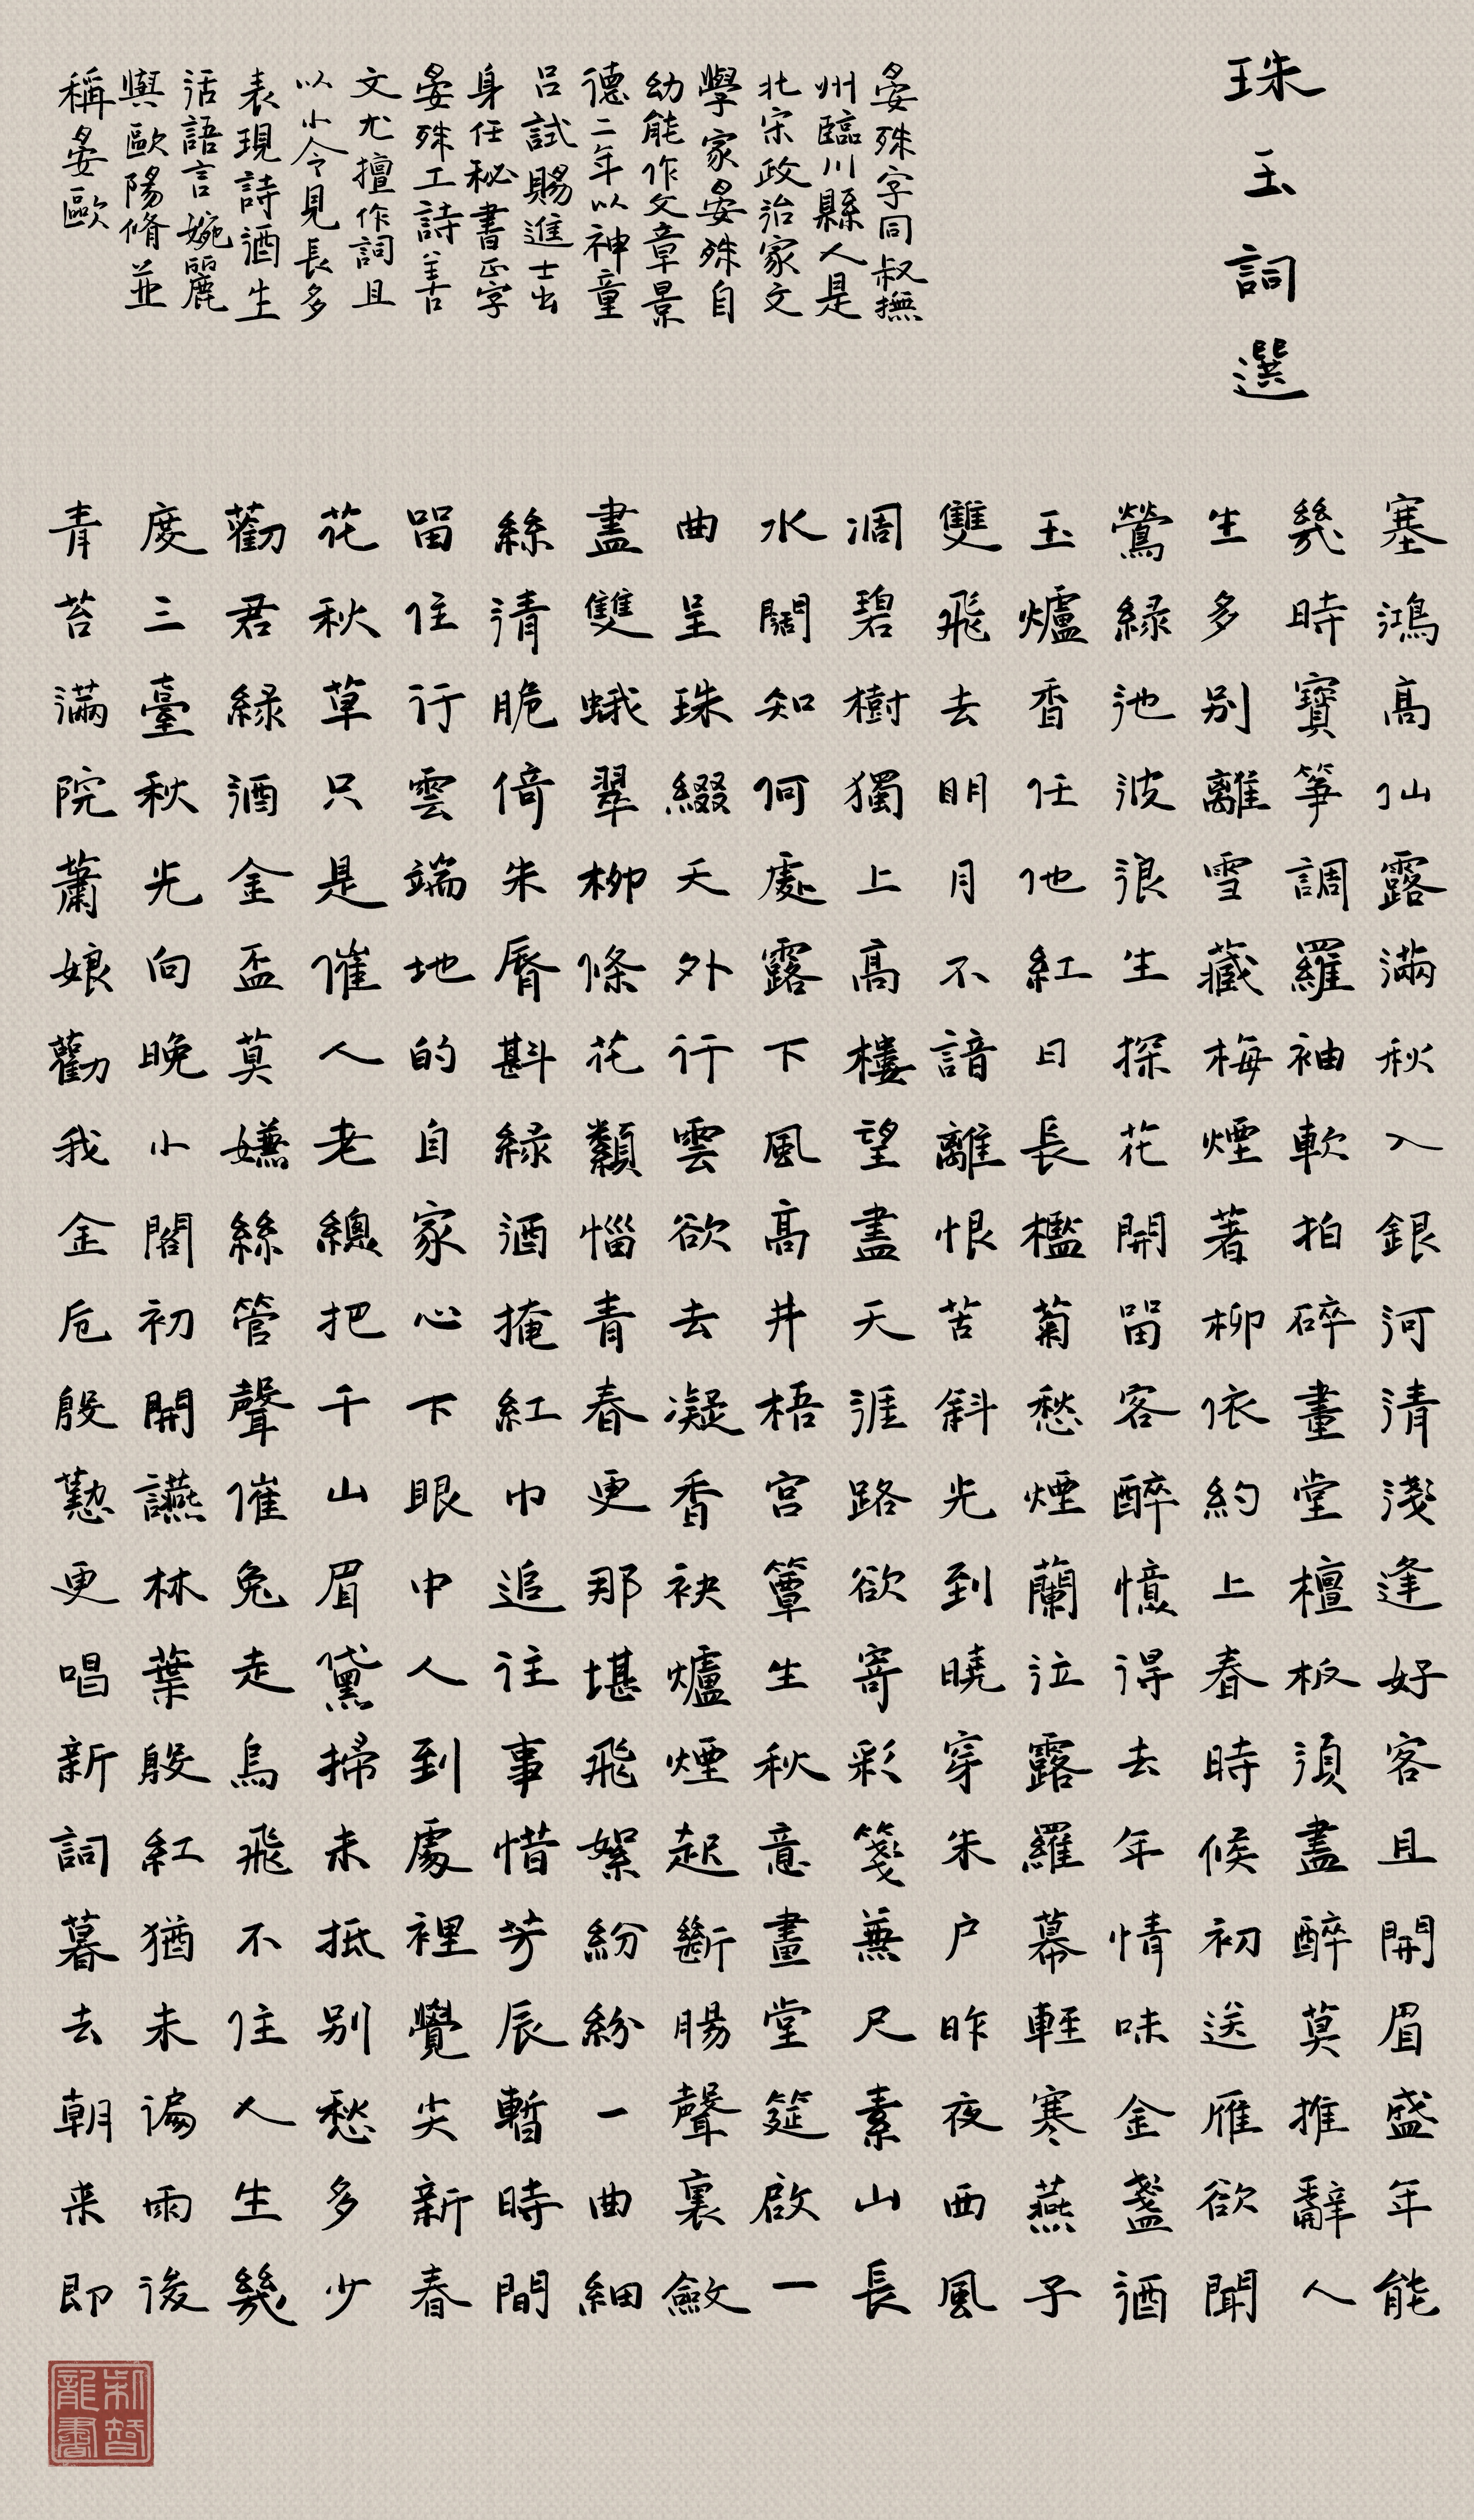 珠玉詞選
晏殊字同叔撫
州臨川縣人是
北宋政治家文
學家晏殊自
幼能作文章景
德二年以神童
召試賜進士出
身任秘書正字
晏殊工詩善
文尤擅作詞且
以小令見長多
表現詩酒生
活語言婉麗
與歐陽脩並
稱晏歐
塞鴻高仙露滿秋入銀河清淺逢好客且開眉盛年能
幾時寶箏調羅袖軟拍碎畫堂檀板須盡醉莫推辭人
生多别離雪藏梅煙著柳依約上春時候初送雁欲聞
鶯綠池波浪生探花開留客醉憶得去年情味金盞酒
玉爐香任他紅日長檻菊愁煙蘭泣露羅幕輕寒燕子
雙飛去明月不諳離恨苦斜光到曉穿朱户昨夜西風
凋碧樹獨上高樓望盡天涯路欲寄彩箋兼尺素山長
水闊知何處露下風高井梧宮簟生秋意畫堂筵啟一
曲呈珠綴天外行雲欲去凝香袂爐煙起斷腸聲裏斂
盡雙蛾翠柳條花纇惱青春更那堪飛絮紛紛一曲細
絲清脆倚朱脣斟綠酒掩紅巾追往事惜芳辰暫時間
留住行雲端地的自家心下眼中人到處裡覺尖新春
花秋草只是催人老總把千山眉黛掃未抵别愁多少
勸君綠酒金盃莫嫌絲管聲催兔走烏飛不住人生幾
度三臺秋光向晚小閣初開讌林葉殷紅猶未遍雨後
青苔滿院蕭娘勸我金卮殷懃更唱新詞暮去朝来即